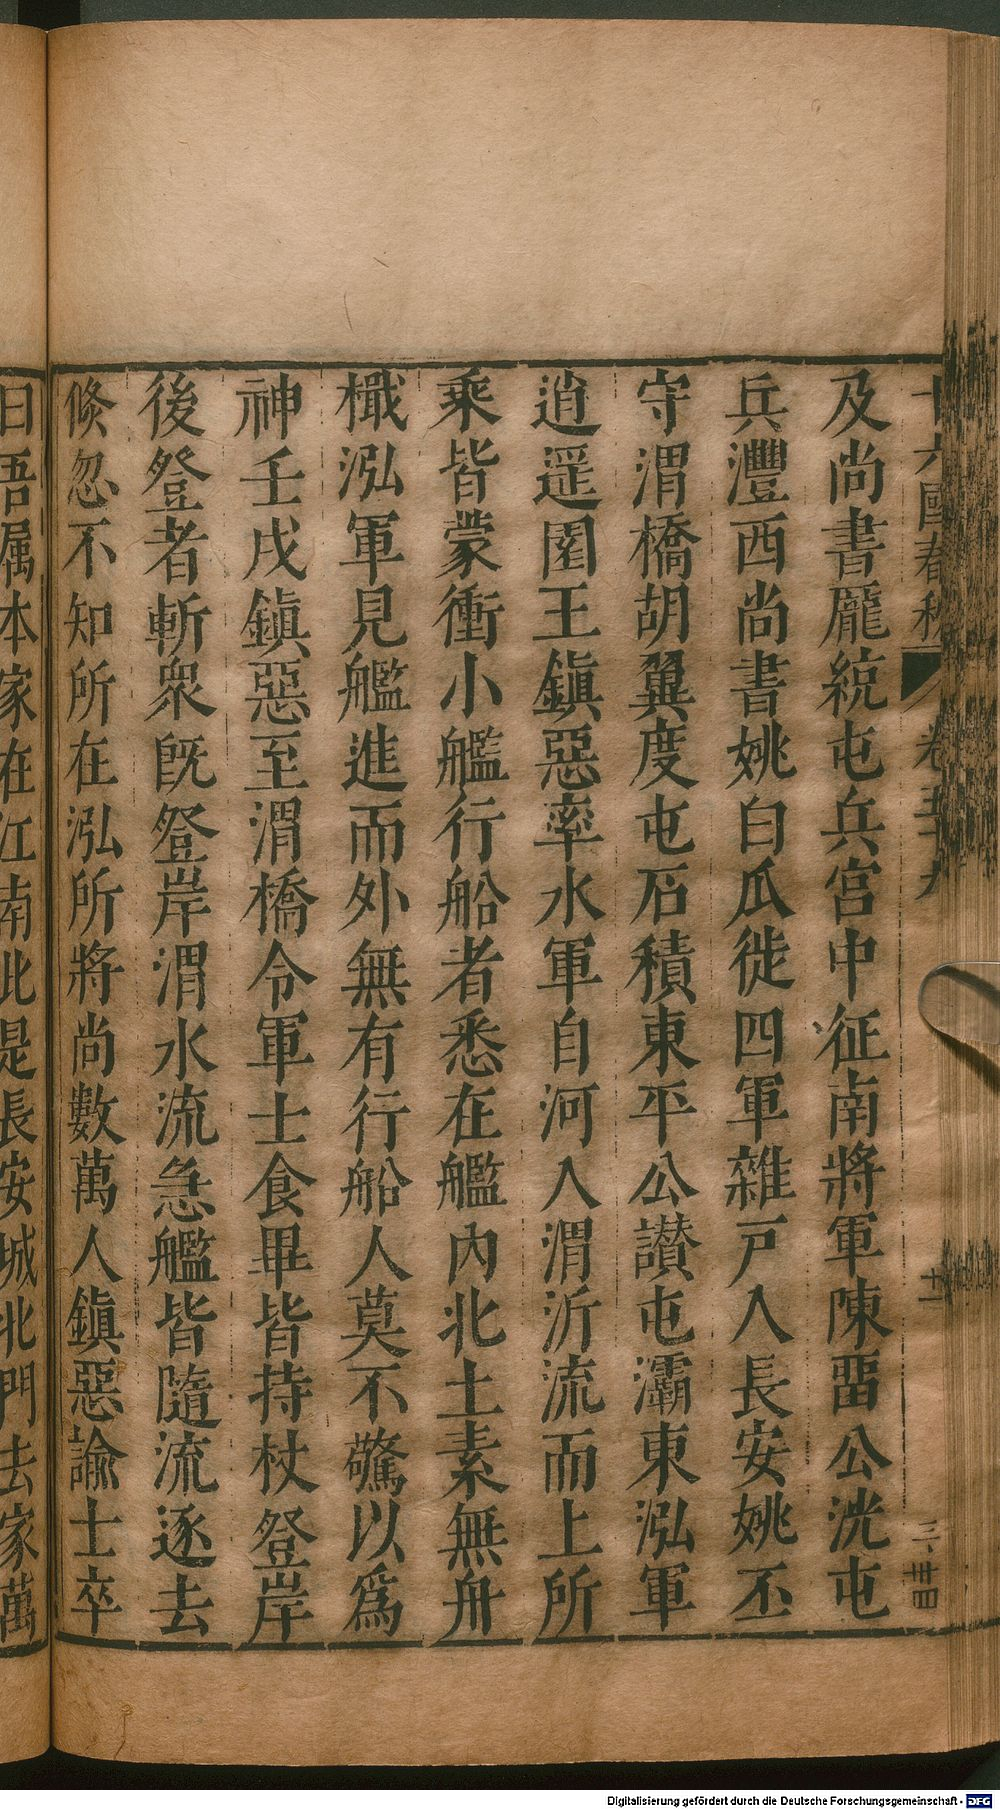 十六國春秋 卷五十九 十一
及尚書龐統屯兵宫中征南將軍陳畱公洸屯
兵灃西尚書姚白瓜徙四軍雜戸入長安姚丕
守渭橋胡翼度屯石積東平公讃屯灞東泓軍
逍遥園王鎮惡率水軍自河入渭泝流而上所
乘皆蒙衝小艦行船者悉在艦内北土素無舟
檝泓軍見艦進而外無有行船人莫不驚以爲
神壬戌鎮惡至渭橋令軍士食畢皆持杖登岸
後登者斬衆旣登岸渭水流急艦皆隨流逐去
倏忽不知所在泓所將尚數萬人鎮惡諭士卒
曰吾属本家在江南此是長安城北門去家萬
Digitalisierung gefördert durch die Deutsche Forschungsgemeinschaft - DFG